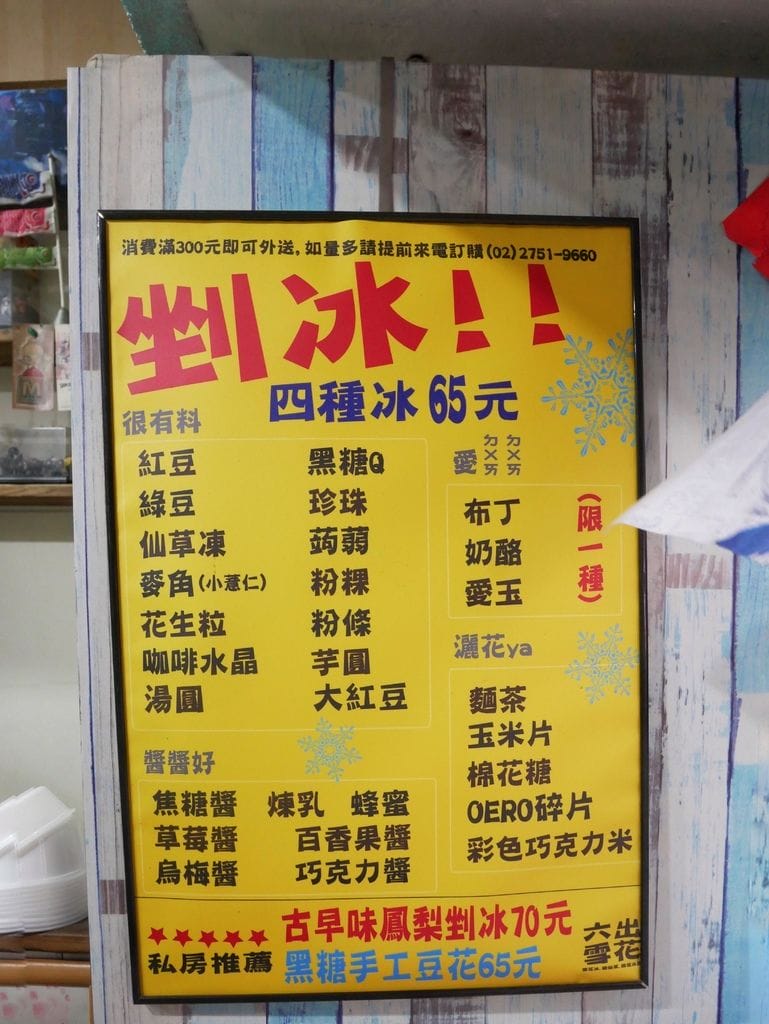 消費滿300元即可外送,如量多請提前來電訂購(02)2751-9660
剉冰!!
四種冰65元
很有料
紅豆 黑糖Q
綠豆 珍珠
仙草凍 蒟蒻
麥角(小薏仁) 粉粿
花生粒 粉條
咖啡水晶 芋圓
湯圓 大紅豆
愛ㄉㄨㄞㄉㄨㄞ
布丁
奶酪
愛玉
(限一種)
灑花ya
麵茶
玉米片
棉花糖
OERO碎片
彩色巧克力米
醬醬好
焦糖醬 煉乳 蜂蜜
草莓醬 百香果醬
烏梅醬 巧克力醬
私房推薦
古早味鳳梨剉冰70元
黑糖手工豆花65元
六出
雪花